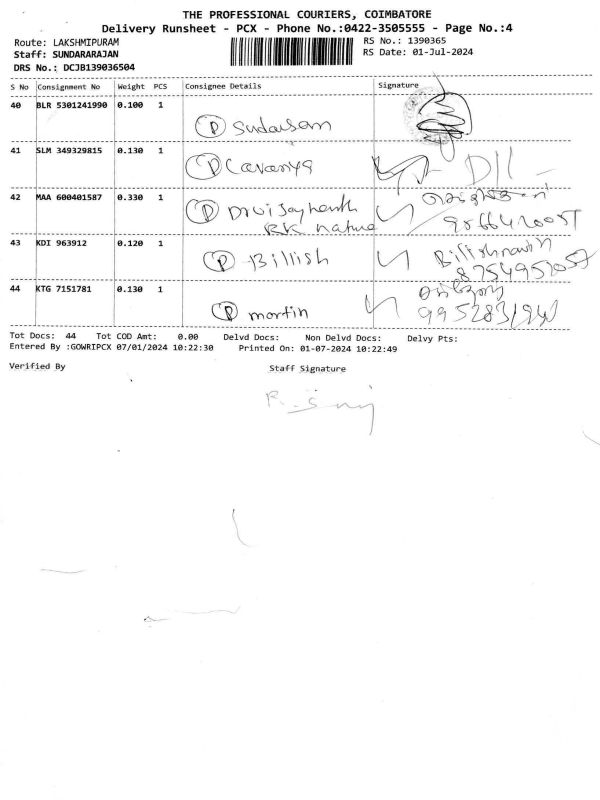 THE PROFESSIONAL COURIERS, COIMBATORE
Delivery Runsheet - PCX - Phone No.:0422-3505555 - Page No.:4
Route: LAKSHMIPURAM RS No.: 1390365
Staff: SUNDARARAJAN RS Date: 01-Jul-2024
DRS No.: DCJB139036504
S No Consignment No Weight PCS Consignee Details Signature
40 BLR 5301241990 0.100 1
P Sudarsan
41 SLM 349329815 0.130 1
P Lavanya
42 MAA 600401587 0.330 1
P Dr Vijayhanth
RK nature
43 KDI 963912 0.120 1
P Billish
8754951057
44 KTG 7151781 0.130 1
P mortin
Tot Docs: 44 Tot COD Amt: 0.00 Delvd Docs: Non Delvd Docs: Delvy Pts:
Entered By :GOWRIPCX 07/01/2024 10:22:30 Printed On: 01-07-2024 10:22:49
Verified By Staff Signature